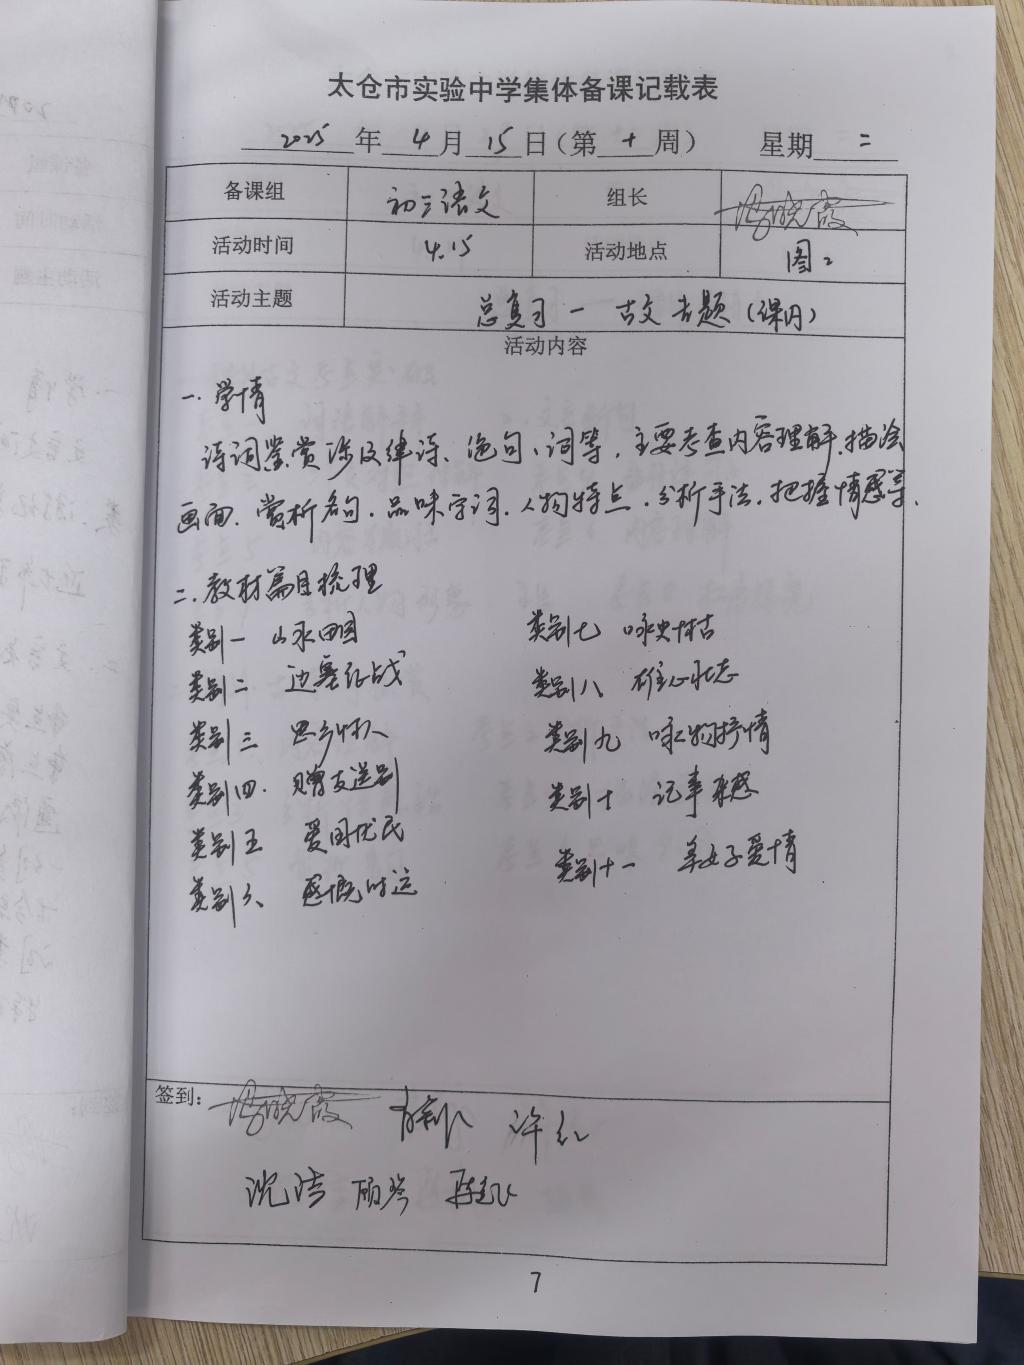 太仓市实验中学集体备课记载表
2025年4月15日（第十周） 星期二
备课组 初三语文 组长
活动时间 4.15 活动地点 图2
活动主题 总复习一古文专题（课内）
活动内容
一.学情
诗词鉴赏涉及律诗、绝句、词等，主要考查内容理解.描绘
画面.赏析名句.品味字词.人物特点.分析手法.把握情感等.
二.教材篇目梳理
类别一 山水田园 类别七 咏史怀古
类别二 边塞征战 类别八 雄心壮志
类别三 思乡怀人 类别九 咏物抒情
类别四.赠友送别 类别十 记事抒感
类别五 爱国忧民 类别十一 单女子爱情
类别六 感慨时运
签到： 许红
沈洁
7